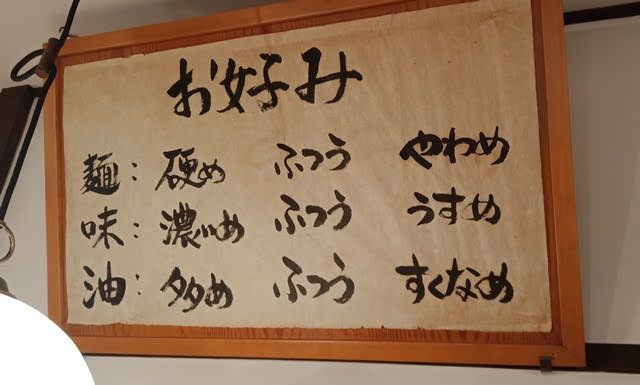 お好み
麺：硬め ふつう やわめ
味：濃いめ ふつう うすめ
油：多め ふつう すくなめ